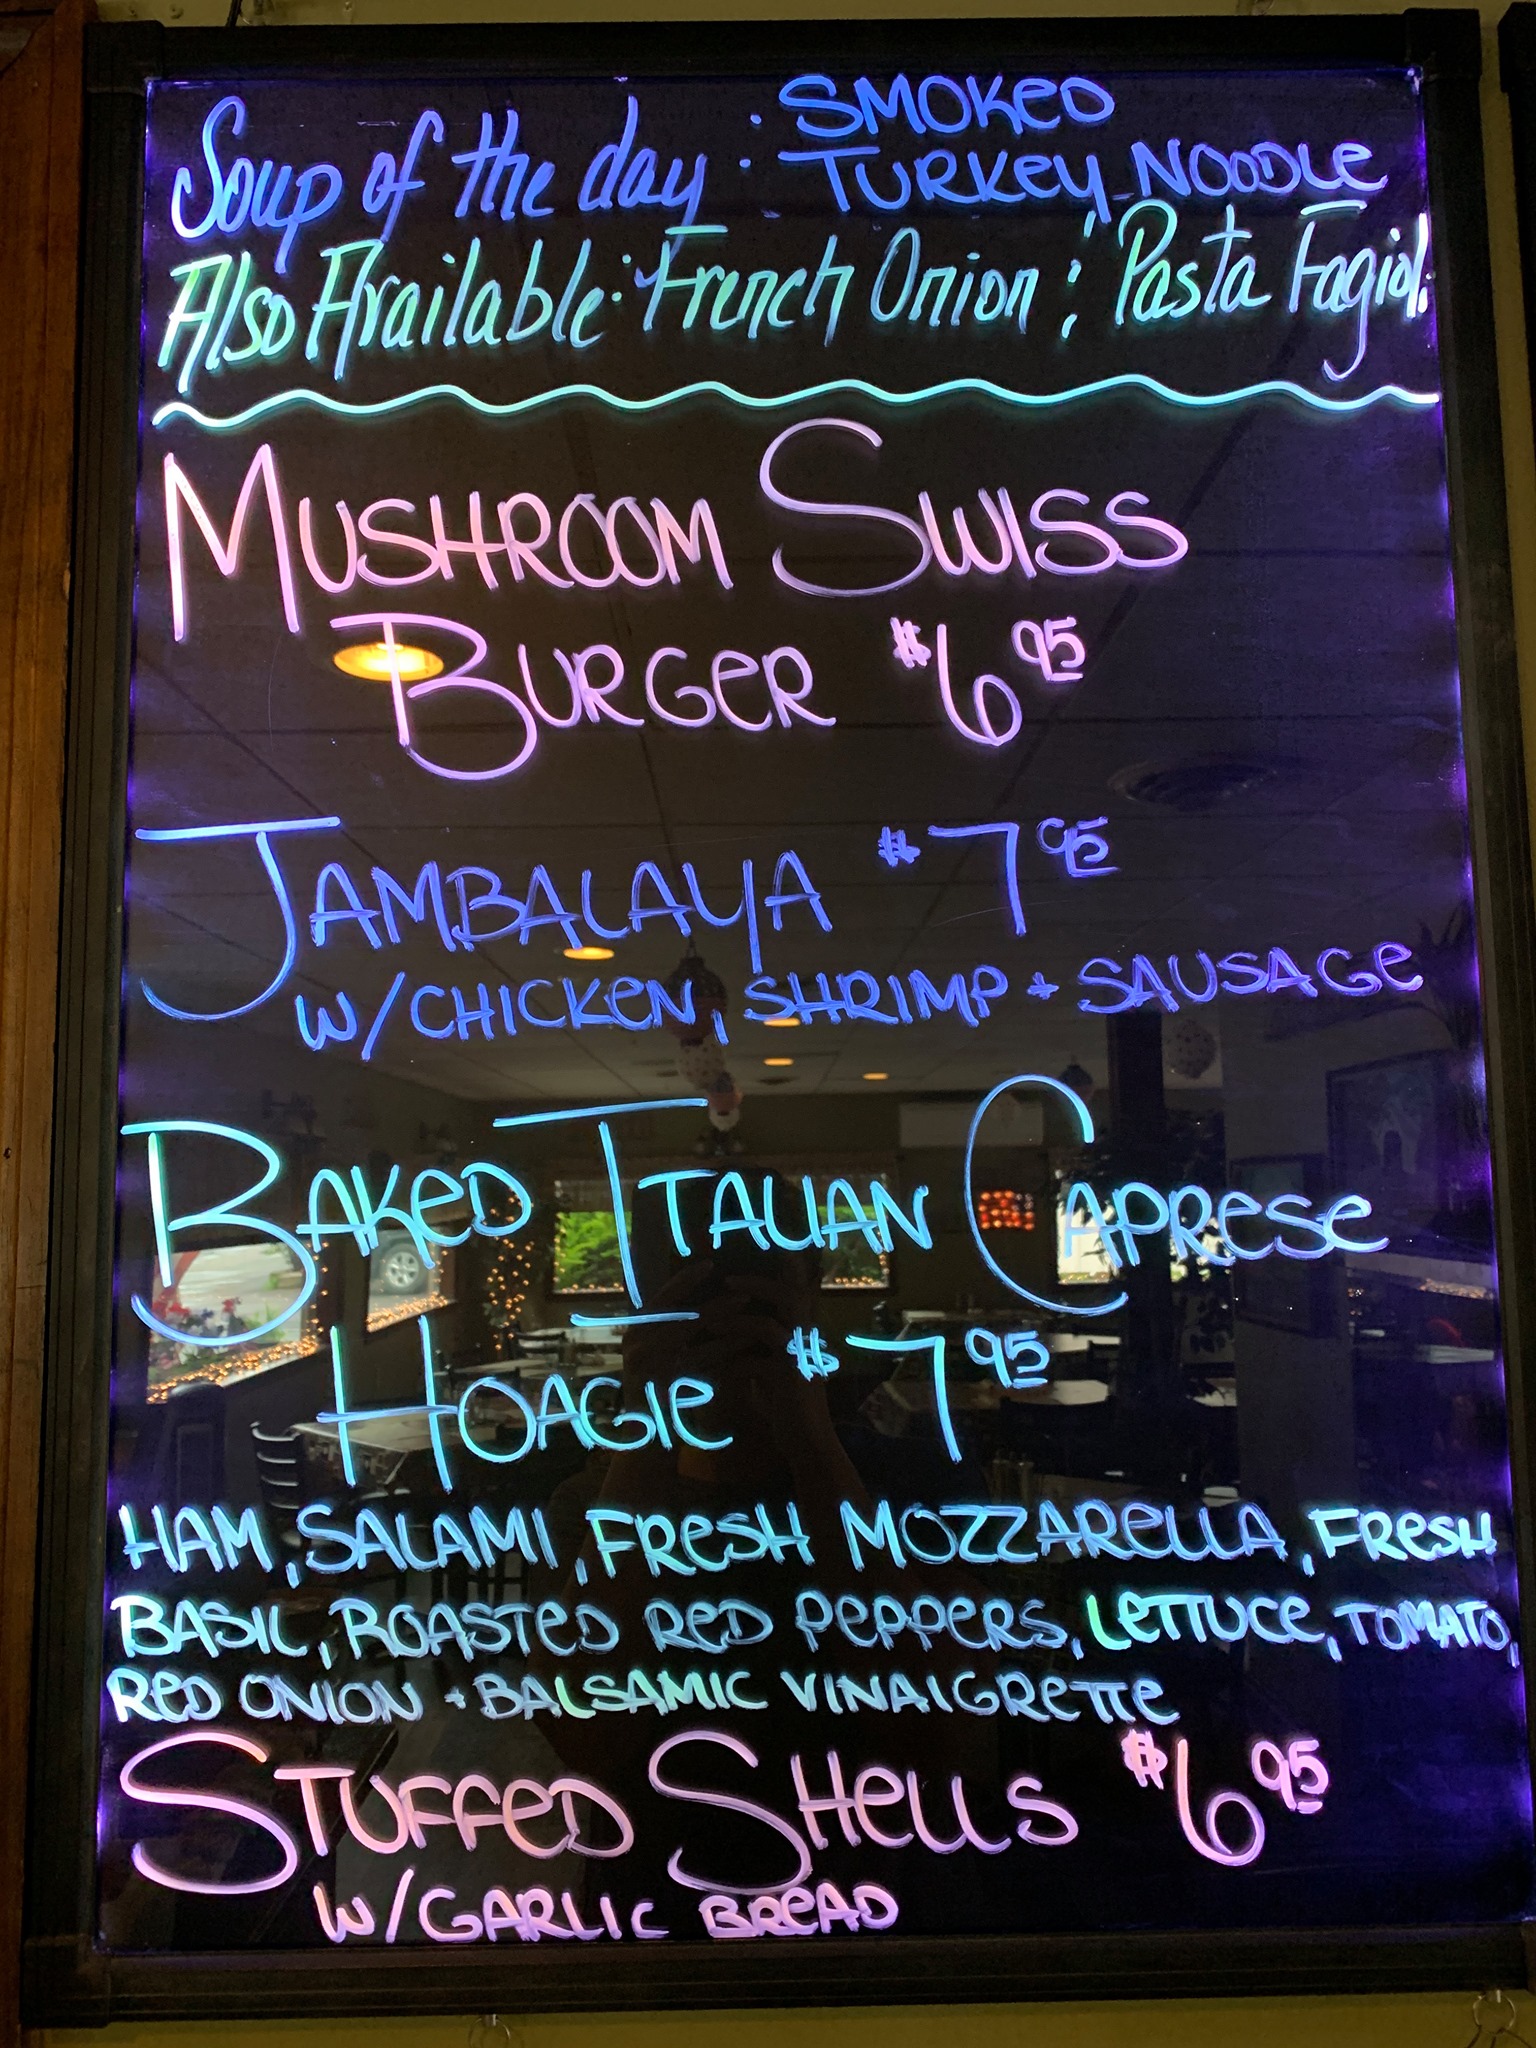 Soup of the day: SMOKED
TURKEY NOODLE
Also Available: French Onion ; Pasta Fagioli
MUSHROOM SWISS
BURGER $6 95
JAMBALAYA $7 95
W/CHICKEN, SHRIMP + SAUSAGE
BAKED ITALIAN CAPRESE
HOAGIE $7 95
HAM, SALAMI, FRESH MOZZARELLA, FRESH
BASIL, ROASTED RED PEPPERS, LETTUCE, TOMATO,
RED ONION + BALSAMIC VINAIGRETTE
STUFFED SHELLS $6 95
W/GARLIC BREAD